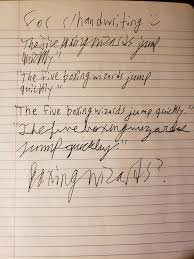 For c/handwriting
"The five boxing wizards jump
quickly."
"The five boxing wizards jump
quickly"
"The five boxing wizards jump quickly."
"The five boxing wizards
jump quickly."
Boxing wizards?